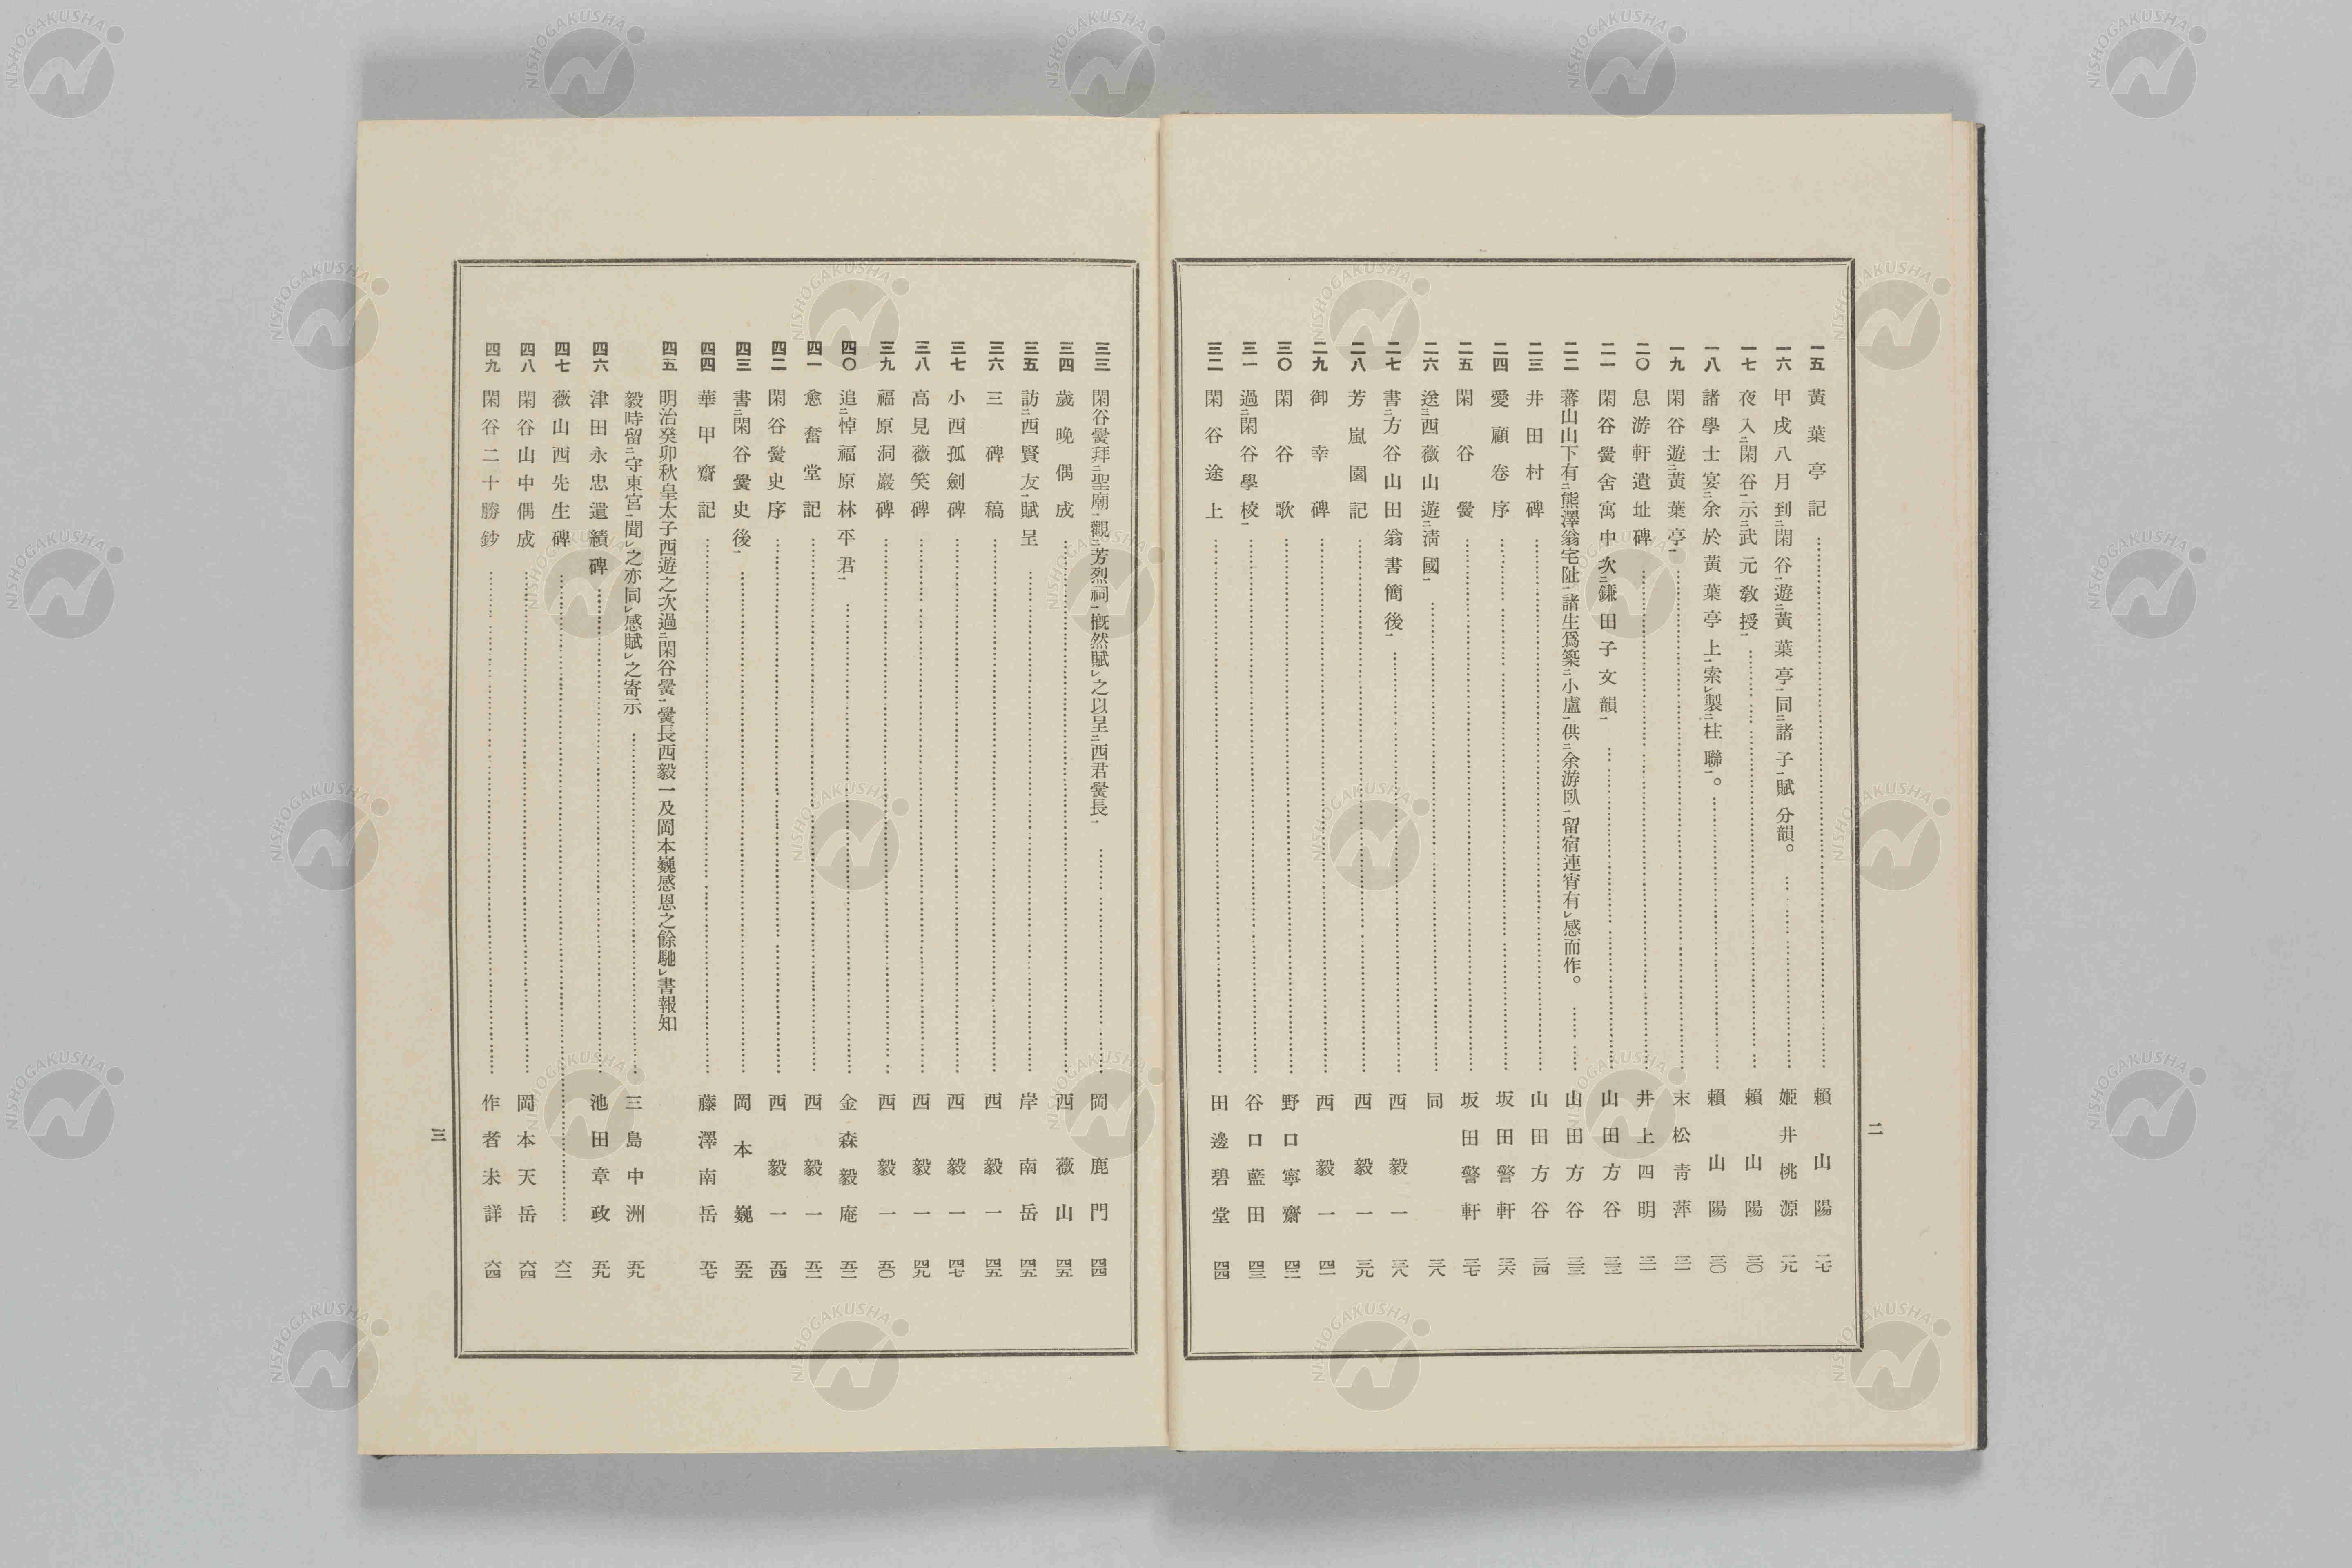 一五 黃葉亭記 賴山陽 二七
一六 甲戌八月到二閑谷一遊二黃葉亭一同二諸子一賦 分韻。 姬井桃源 二九
一七 夜入二閑谷一示二武元敎授一 賴山陽 三〇
一八 諸學士宴二余於黃葉亭上一索レ製二柱聯一。 賴山陽 三〇
一九 閑谷遊二黃葉亭一 末松靑萍 三一
二〇 息游軒遺址碑 井上四明 三一
二一 閑谷黌舍寓中次二鎌田子文韻一 山田方谷 三三
二二 蕃山山下有二熊澤翁宅阯一諸生爲築二小廬一供二余游臥一留宿連宵有レ感而作。 山田方谷 三三
二三 井田村碑 山田方谷 三四
二四 愛顧卷序 坂田警軒 三六
二五 閑谷黌 坂田警軒 三七
二六 送三西薇山遊二淸國一 同 三八
二七 書二方谷山田翁書簡後一 西毅一 三八
二八 芳嵐園記 西毅一 三九
二九 御幸碑 西毅一 四一
三〇 閑谷歌 野口寧齋 四二
三一 過二閑谷學校一 谷口藍田 四三
三二 閑谷途上 田邊碧堂 四四
二
三三 閑谷黌拜二聖廟一觀二芳烈祠一慨然賦レ之以呈二西君黌長一 岡鹿門 四四
三四 歲晚偶成 西薇山 四五
三五 訪二西賢友一賦呈 岸南岳 四五
三六 三碑稿 西毅一 四五
三七 小西孤劍碑 西毅一 四七
三八 高見薇笑碑 西毅一 四九
三九 福原洞巖碑 西毅一 五〇
四〇 追二悼福原林平君一 金森毅庵 五二
四一 愈奮堂記 西毅一 五三
四二 閑谷黌史序 西毅一 五四
四三 書二閑谷黌史後一 岡本巍 五五
四四 華甲齋記 藤澤南岳 五七
四五 明治癸卯秋皇太子西遊之次過二閑谷黌一黌長西毅一及岡本巍感恩之餘馳レ書報知
毅時留二守東宮一聞レ之亦同レ感賦レ之寄示 三島中洲 五九
四六 津田永忠遺績碑 池田章政 五九
四七 薇山西先生碑 六二
四八 閑谷山中偶成 岡本天岳 六四
四九 閑谷二十勝鈔 作者未詳 六四
三
NISHOGAKUSHA